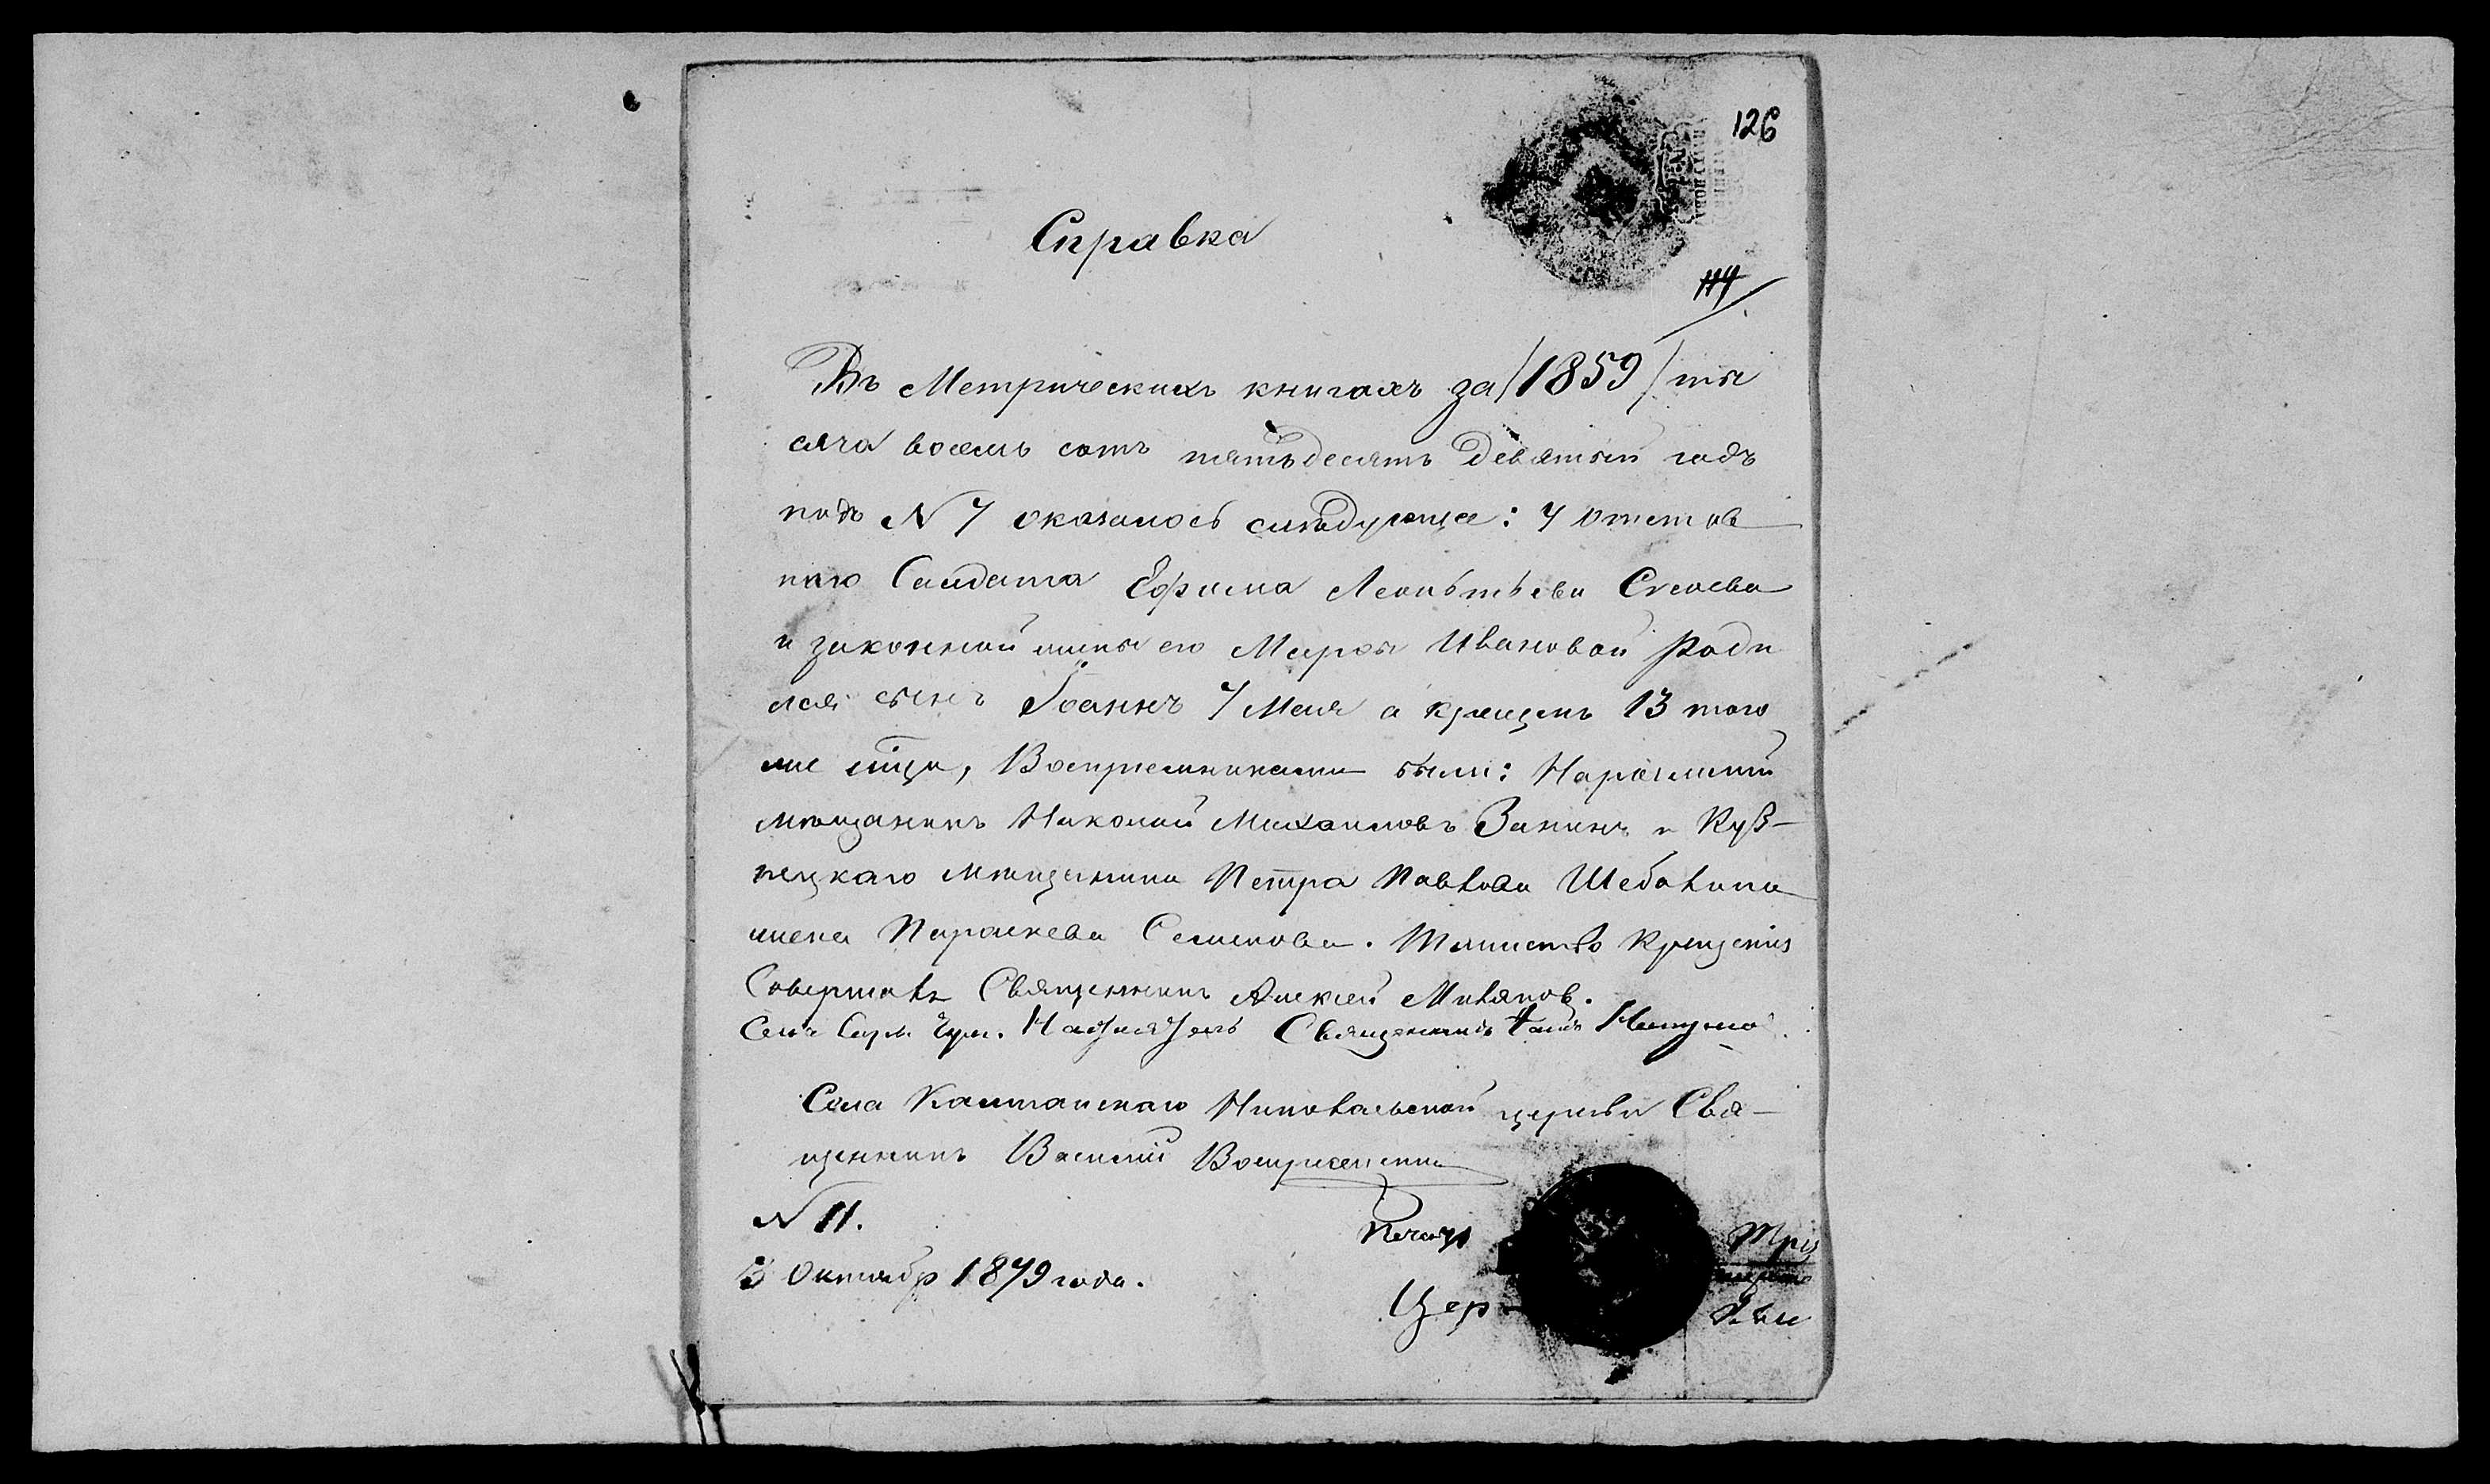 126
Справка
114
Въ Метрическихъ книгахъ за /1859/ ты
сяча восемь сотъ пятьдесятъ девятый годъ
подъ N 7 оказалось слѣдующее: У отстав
наго Салдата Ефима Леонтьева
и законной жены его Марѳы Ивановой роди
лся сынъ Іоаннъ 7 Мая а крещенъ 13 того
же мѣца, Воспріемниками были: Нарымскій
мѣщанинъ Николай Михаиловъ Занинъ и Куз-
нецкаго мѣщанина Петра Павлова Шебалина
жена Параскева Семенова. Таинство Крещенія
Совершалъ Священникъ Алексей
Священникъ
Села Каштанскаго Никольской церкви Свя-
щенникъ Василій
N 11.
Печать
3 Октябр 1879 года.
Цер-